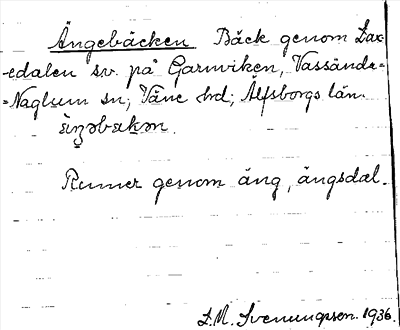 Ängebäcken Bäck genom Lax-
-edalen sv. på Garnviken, Vassända-
-Naglum sn; Väne hd; Älfsborgs län.
Rinner genom äng, ängsdal.
L.M. Svenungsson. 1936.